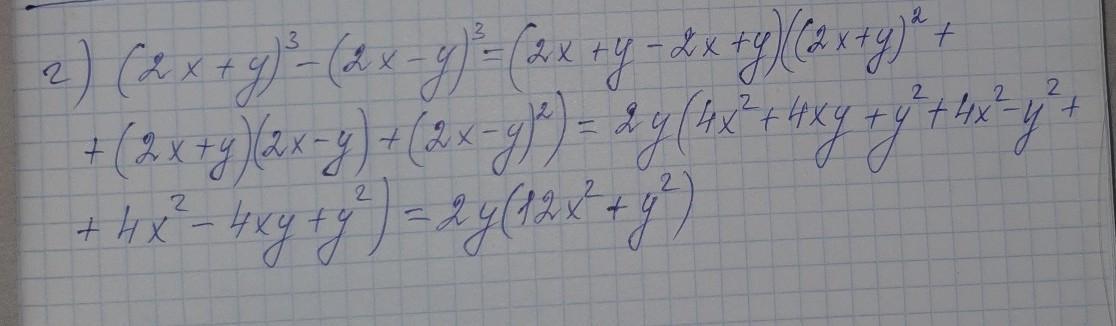 г) (2x+y)³-(2x-y)³=(2x+y-2x+y)((2x+y)²+
+(2x+y)(2x-y)+(2x-y)²)=2y(4x²+4xy+y²+4x²-y²+
+4x²-4xy+y²)=2y(12x²+y²)